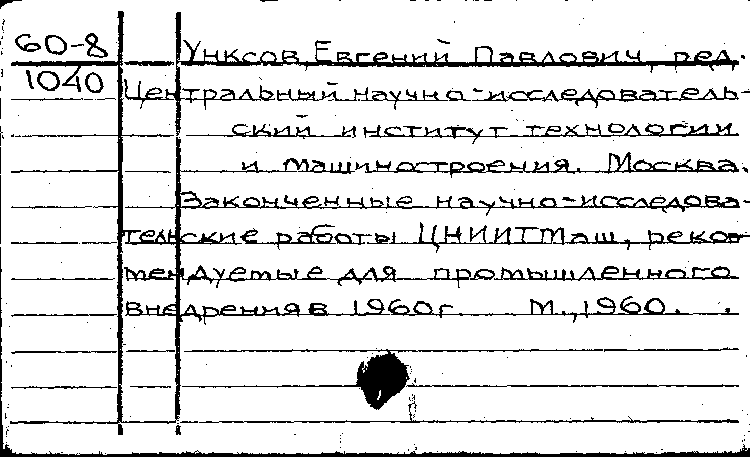 60-8 Унксов, Евгений Павлович, ред.
1040 Центральный научно-исследователь-
ский институт технологии
и машиностроения. Москва.
Законченные научно-исследова-
тельские работы ЦНИИТМаш, реком
мендуемые для промышленного
внедрения в 1960г. М., 1960.